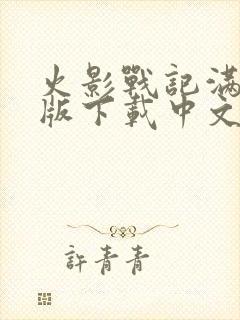 火影戰記滿
版下載中文
許青青